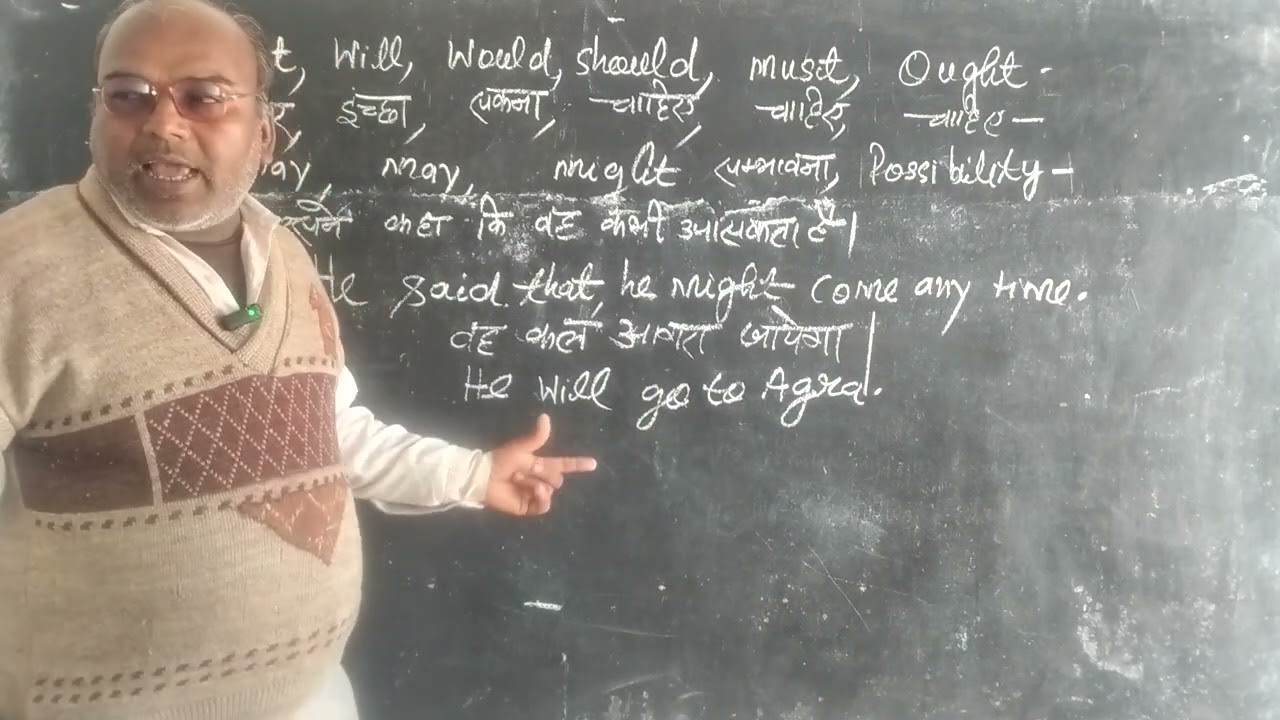 t, Will, Would, should, must, Ought -
इच्छा, सकना, चाहिए, चाहिए, चाहिए -
ay, may, might सम्भावना, Possibility -
कहा कि वह कभी आ सकता है।
He said that, he might come any time.
वह कल आगरा जायेगा।
He will go to Agra.